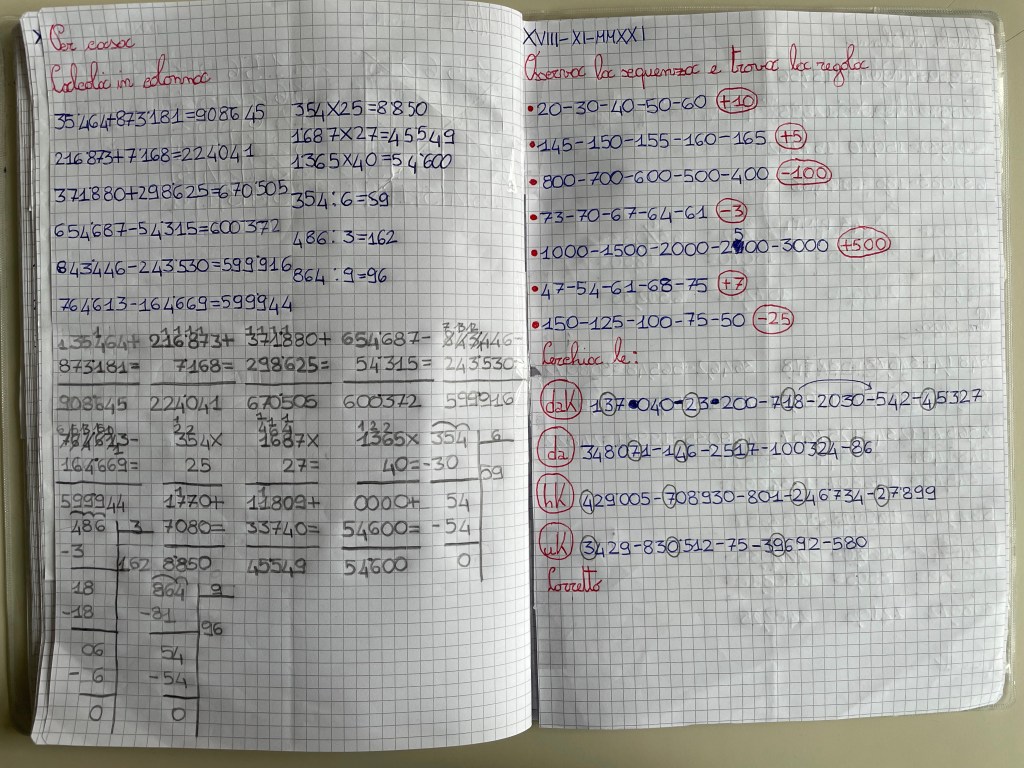 Per casa
Calcola in colonna
35'464+873'181=908'645
216'873+7'168=224'041
371'880+298'625=670'505
654'687-54'315=600'372
843'446-243'530=599'916
764'613-164'669=599'944
354×25=8'850
1687×27=45'549
1365×40=54'600
354:6=59
486:3=162
864:9=96
135'464+ 216'873+ 371'880+ 654'687- 843'446-
873181= 7168= 298625= 54'315= 243'530=
908645 224041 670505 600372 599916
354× 1687× 1365× 354 6
164'669= 25 27= 40= -30 59
599944 1770+ 11809+ 0000+ 54
486 3 7080= 33740= 54600= -54
-3 162 8'850 45549 54600 0
18 864 9
-18 -81 96
06 54
-6 -54
0 0
XVIII-XI-MMXXI
Osserva la sequenza e trova la regola
•20-30-40-50-60 +10
•145-150-155-160-165 +5
•800-700-600-500-400 -100
•73-70-67-64-61 -3
•1000-1500-2000-2500-3000 +500
•47-54-61-68-75 +7
•150-125-100-75-50 -25
Cerchia le:
dak 137•040-23•200-718-2030-542-45327
da 348071-146-2517-100324-86
hk 429'005-708'930-801-246'734-27899
uk 3429-830'512-75-39692-580
Corretto